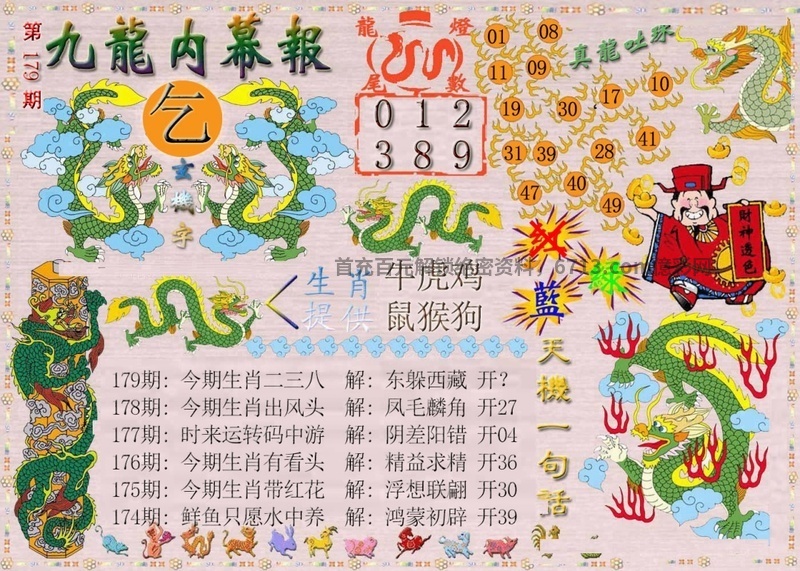 第179期
九龍内幕報
龍燈
尾數
012
389
真龍吐珠
01 08
11 09
19 30 17 10
31 39 28 41
47 40 49
乞
玄機字
財神送色
红
藍
绿
生肖提供
牛虎鸡
鼠猴狗
179期: 今期生肖二三八 解: 东躲西藏 开?
178期: 今期生肖出风头 解: 凤毛麟角 开27
177期: 时来运转码中游 解: 阴差阳错 开04
176期: 今期生肖有看头 解: 精益求精 开36
175期: 今期生肖带红花 解: 浮想联翩 开30
174期: 鲜鱼只愿水中养 解: 鸿蒙初辟 开39
天機一句話